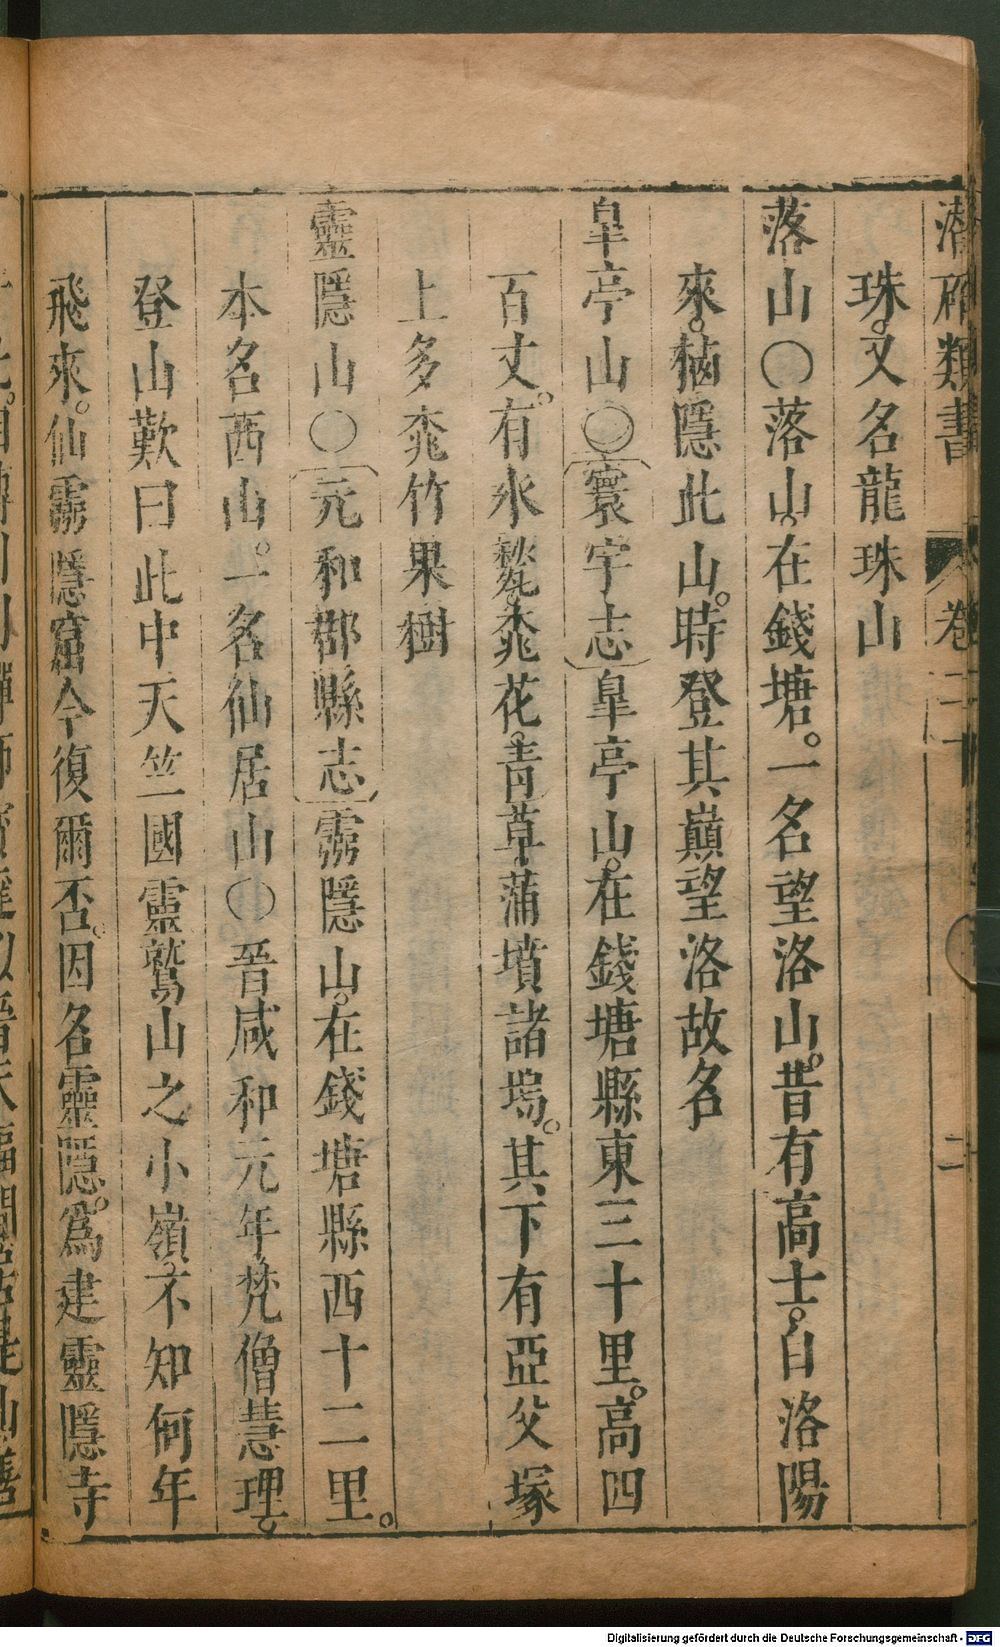 潛确類書 卷二十 二
珠。又名龍珠山
落山○落山。在錢塘。一名望洛山。昔有高士。自洛陽
來。棲隱此山。時登其巔望洛故名
皐亭山○寰宇志皐亭山。在錢塘縣東三十里。高四
百丈。有水甃桃花。青草蒲墳諸塢。其下有亞父塚
上多桃竹果樹
靈隱山○元和郡縣志靈隱山。在錢塘縣西十二里。
本名西山。一名仙居山○晉咸和元年。梵僧慧理。
登山歎曰此中天竺國靈鷲山之小嶺。不知何年
飛來。仙靈隱窟今復爾否。因名靈隱。爲建靈隱寺
Digitalisierung gefördert durch die Deutsche Forschungsgemeinschaft - DFG